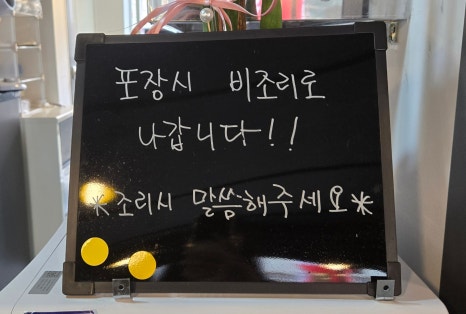 포장시 비조리로
나갑니다!!
*조리시 말씀해주세요*